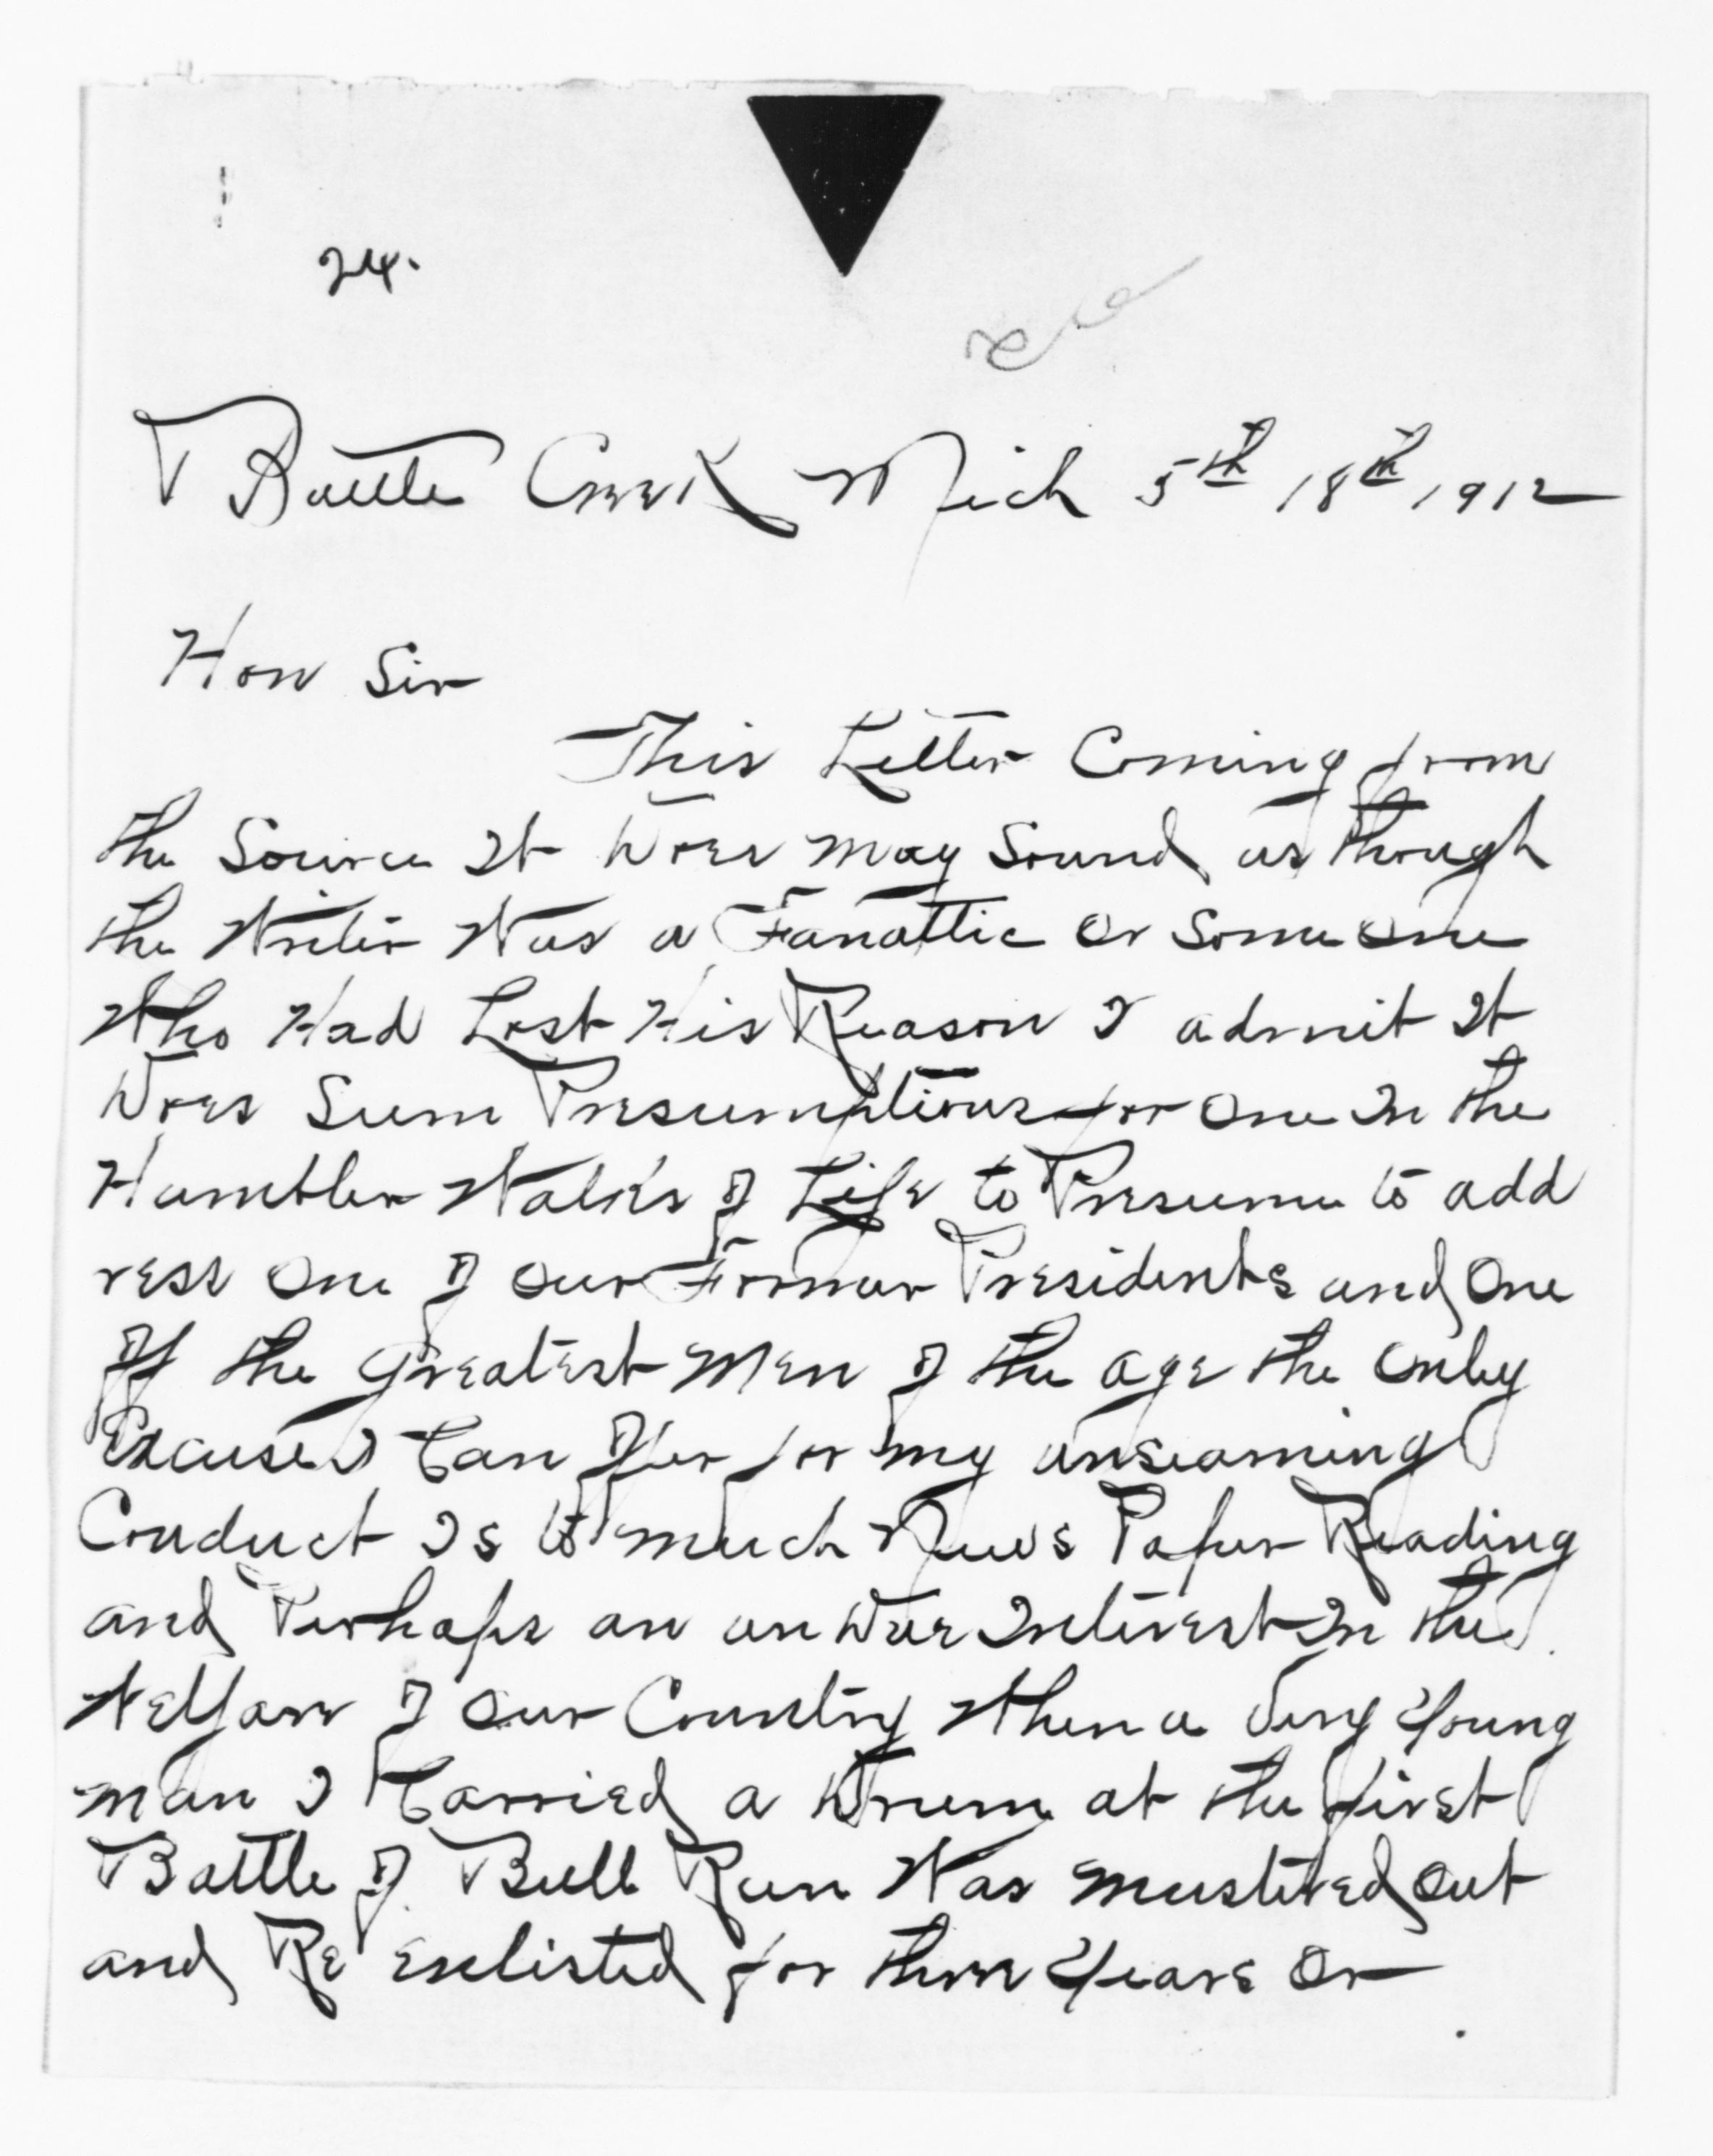 24.
Battle Creek Mich 5th 18th 1912
Hon Sir
This Letter Coming from
the Source It Does may Sound as though
the Writer Was a Fanattic Or Some One
Who Had Lost His Reason I admit It
Does Seem Presumptious for One In the
Humbler Walks of Life to Presume to add
ress One of Our Former Presidents and One
Of the Greatest Men of the age the Only
Excuse I Can Offer for my unseaming
Conduct Is to much News Paper Reading
and Perhaps an un Due Interest In the
Welfare of Our Country When a Very Young
man I Carried a Drum at the first
Battle of Bull Run Was mustered Out
and Re enlisted for three Years Or